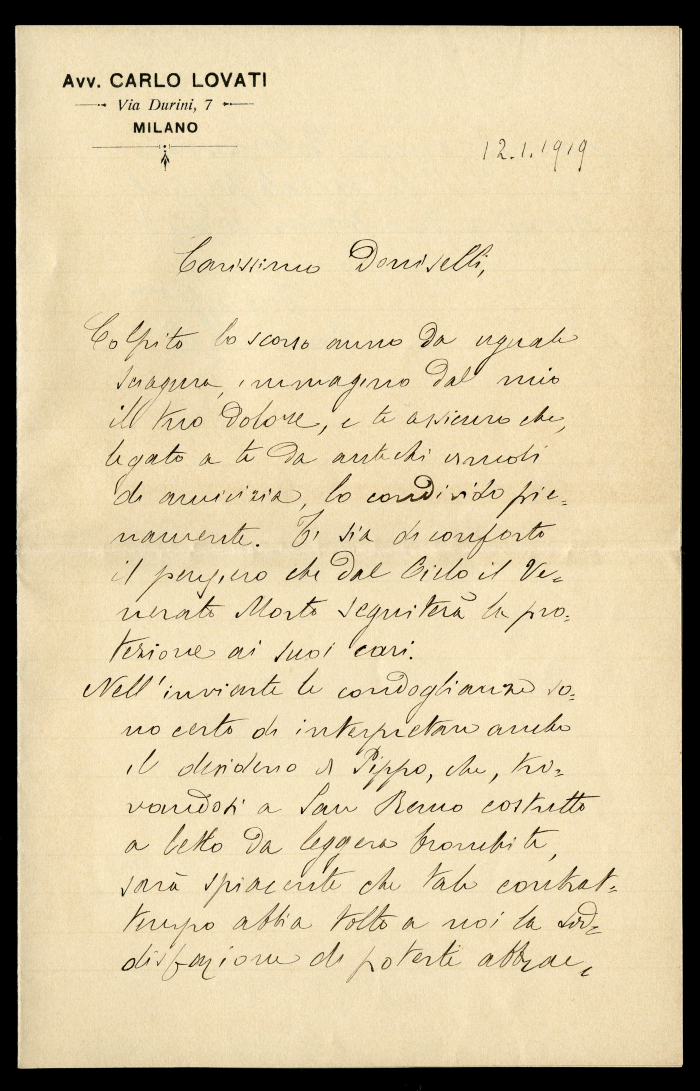 Avv. CARLO LOVATI
Via Durini, 7
MILANO
12.1.1919
Carissimo Doniselli,
Colpito lo scorso anno da uguale
sciagura, immagino dal mio
il tuo dolore, e ti assicuro che,
legato a te da antichi vincoli
di amicizia, lo condivido pie=
namente. Ti sia di conforto
il pensiero che dal Cielo il Ve=
nerato Morto seguiterà la pro=
tezione ai suoi cari.
Nell'inviarti le condoglianze so=
no certo di interpretare anche
il desiderio di Pippo, che, tro=
vandosi a San Remo costretto
a letto da leggera bronchite,
sarà spiacente che tale contrat=
tempo abbia tolto a noi la sod=
disfazione di poterti abbrac=